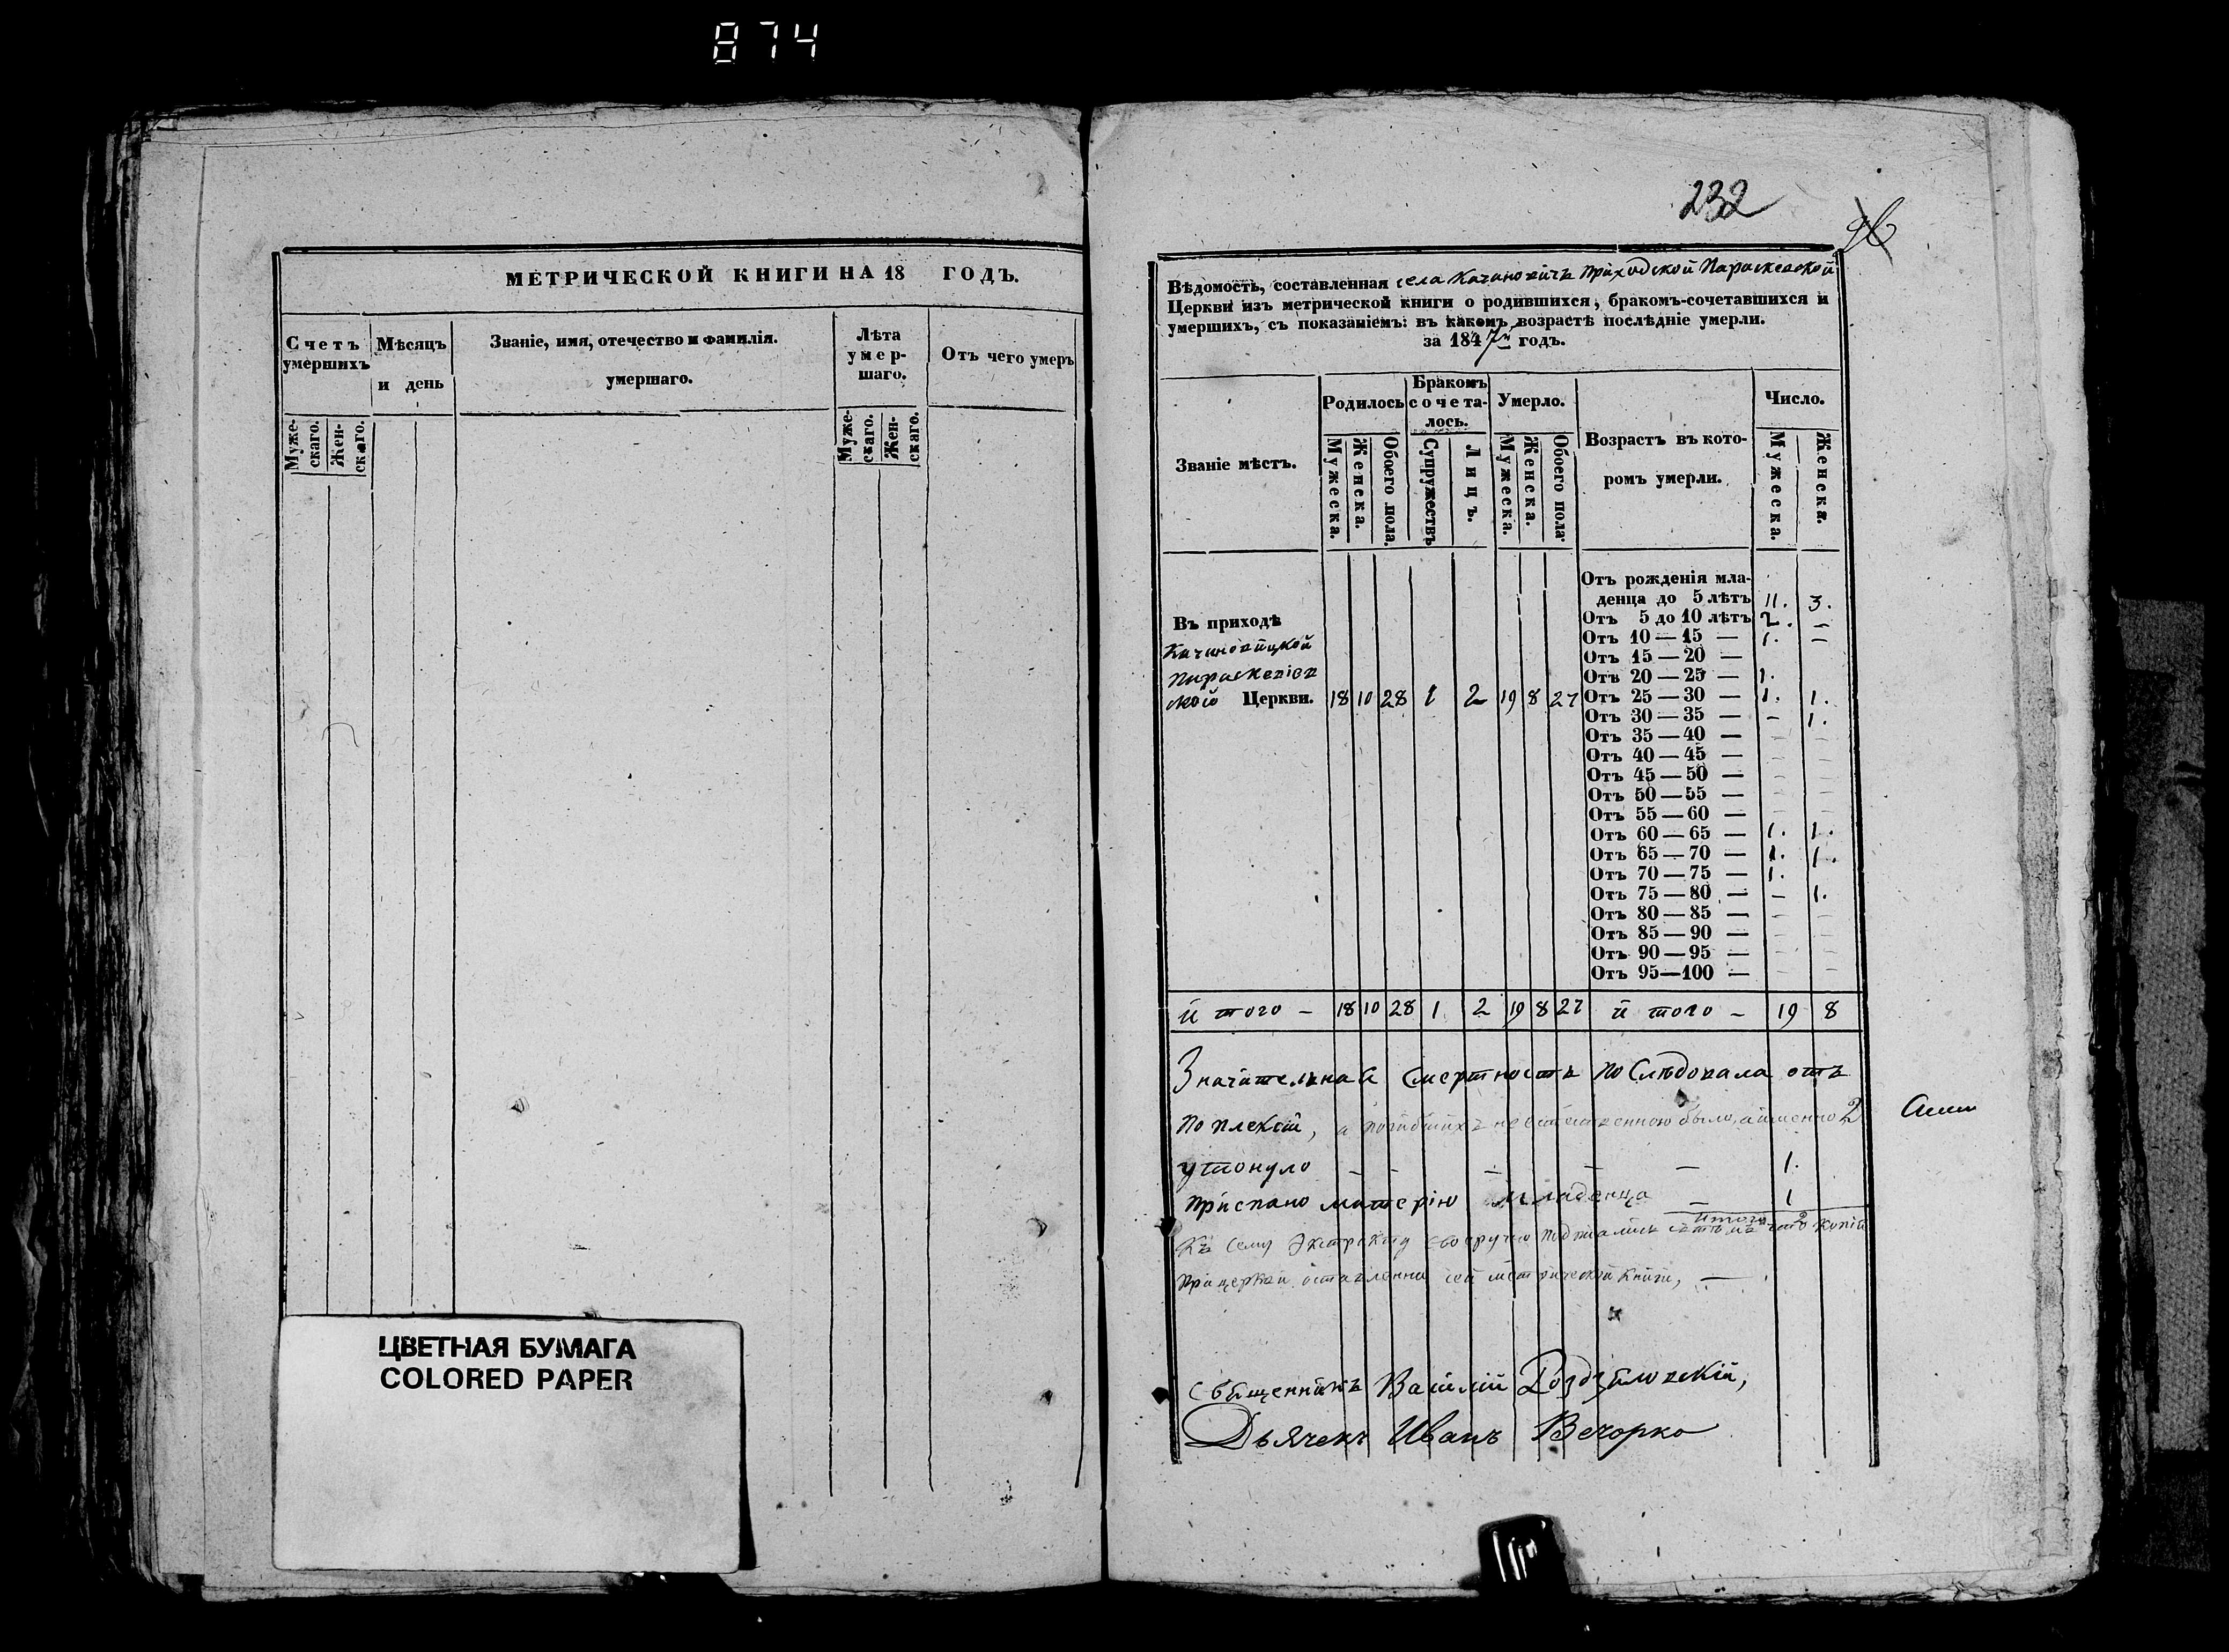 874
МЕТРИЧЕСКОЙ КНИГИ НА 18 ГОДЪ.
Счетъ умершихъ
Муже-скаго.
Жен-скаго.
Мѣсяцъ и день
Званіе, имя, отечество и фамилія.
умершаго.
Лѣта умер-шаго.
Муже-скаго.
Жен-скаго.
Отъ чего умеръ
ЦВЕТНАЯ БУМАГА
COLORED PAPER
232
96
Вѣдомость, составленная села Качановичъ Приходской Параскевской
Церкви изъ метрической книги о родившихся, бракомъ-сочетавшихся и
умершихъ, съ показаніемъ: въ какомъ возрастѣ послѣдніе умерли.
за 1847й годъ.
Званіе мѣстъ.
Родилось
Мужеска.
Женска.
Обоего пола.
Бракомъ
сочета-
лось.
Супружествъ
Лицъ.
Умерло.
Мужеска.
Женска.
Обоего пола
Возрастъ въ кото-
ромъ умерли.
Число.
Мужеска.
Женска.
Въ приходѣ
Качановицкой
Параскевіев
ской Церкви. 18 10 28 1 2 19 8 27
Отъ рожденія мла-
денца до 5 лѣтъ 11. 3.
Отъ 5 до 10 лѣтъ 2. –
Отъ 10 — 15 — 1. –
Отъ 15 — 20 —
Отъ 20 — 25 — 1.
Отъ 25 — 30 — 1. 1.
Отъ 30 — 35 — – 1.
Отъ 35 — 40 — – –
Отъ 40 — 45 — – –
Отъ 45 — 50 — – –
Отъ 50 — 55 — – –
Отъ 55 — 60 — – –
Отъ 60 — 65 — 1. 1.
Отъ 65 — 70 — 1. 1.
Отъ 70 — 75 — 1.
Отъ 75 — 80 — – 1.
Отъ 80 — 85 — – –
Отъ 85 — 90 — – –
Отъ 90 — 95 — – –
Отъ 95—100 — – –
И того – 18 10 28 1 2 19 8 27 И того – 19 8
Значительная смертность последовала отъ
поплексіи, а погибшихъ неестественною было, аименно 2
утонуло – – – – – 1.
Приспано матерію младенца – 1
Итого 2
Къ сему Экстракту своеручно подписались
при церкви оставленна сей метрической книги, —
Священникъ Василій
Дьячекъ Иванъ Вечорко